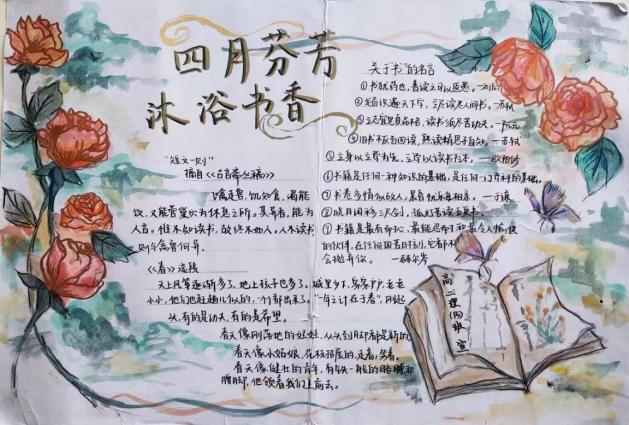 四月芬芳
沐浴书香
"短文一则"
摘自
关于"书"的名言
①书犹药也，善读之可以医愚。—刘向
②发自识遍天下字，立志读尽人间书。
④旧书不厌百回读，熟读精思子自知。—苏轼
⑤立身以立学为先，立学以读书为本。—欧阳修
⑥书籍是任何一种知识的基础，是任何一门学科的基础。
⑦书卷多情似故人，晨昏忧乐每相亲。—于谦
⑨书籍是最有耐心、最能忍耐和最令人愉快
的伙伴，在任何困苦时刻，它都不
会抛弃你。
鹦能言，饥知食，渴能
饮，又能营窠穴为休息之所。其异者，能为
人言。惟不知读书，故终不如人。人不读书
则与禽兽何异。
《春》
天上风筝渐渐多了，地上孩子也多了。城里乡下，家家户户，老老
小小，他们也赶趟儿似的，一个个都出来了。"一年之计在于春"，刚起
头，有的是功夫，有的是希望。
春天像刚落地的娃娃，从头到脚都是新的
春天像小姑娘，花枝招展的，走着，笑着。
春天像健壮的青年，有铁一般的胳膊和
腰脚，他领着我们上前去。